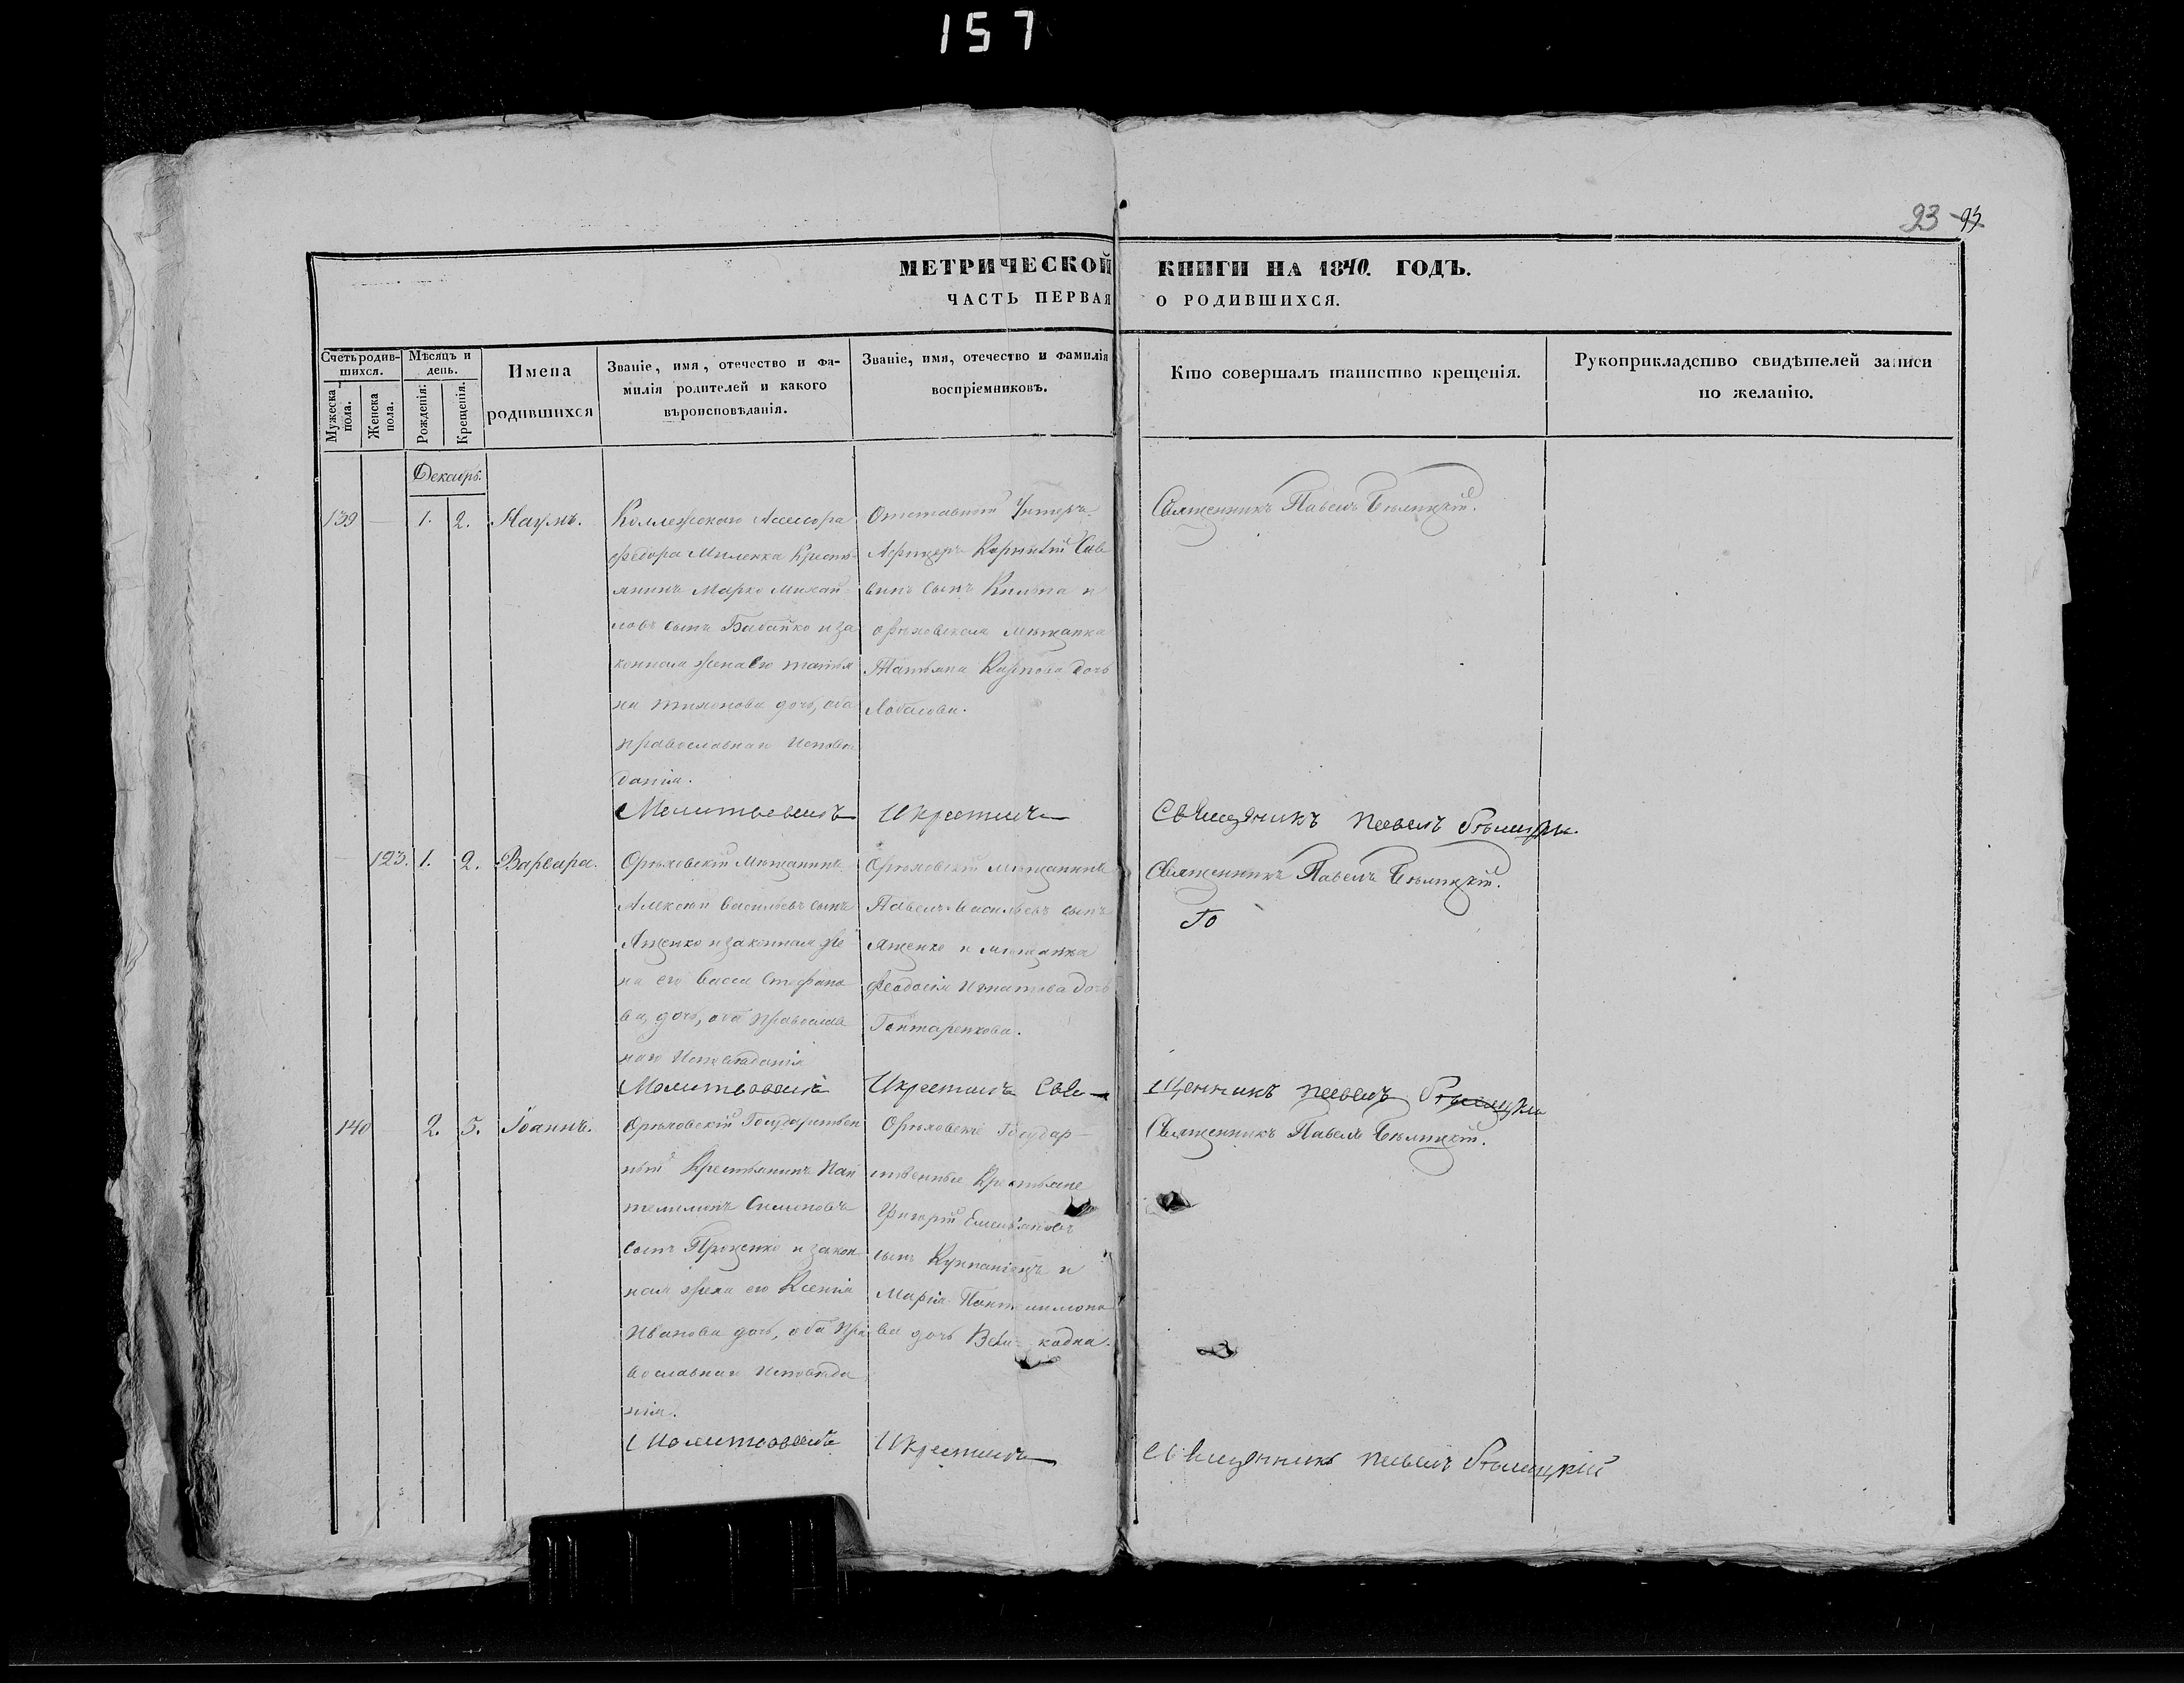 157
93 93
МЕТРИЧЕСКОЙ КНИГИ НА 1840. ГОДЪ.
ЧАСТЬ ПЕРВАЯ О РОДИВШИХСЯ.
Счетъ родив-
шихся.
Мужеска пола.
Женска пола.
Мѣсяцъ и
день.
Рожденія.
Крещенія.
Имена
родившихся
Званіе, имя, отечество и фа-
милія родителей и какого
вѣроисповѣданія.
Званіе, имя, отечество и фамилія
воспріемниковъ.
Кто совершалъ таинство крещенія.
Рукоприкладство свидѣтелей записи
по желанію.
Декабрь.
139 — 1. 2. Наумъ.
Коллежскаго Ассесора
Федора Миленка Крестъ-
янинъ Марко Михай-
ловъ сынъ Бабайко и за
конная жена Его татья
на тихонова дочь, оба
православнаго Исповѣ
данія.
Отставной Унтеръ-
Афицеръ Корнилій Сав
винъ сынъ и
орѣховская мѣщанка
Татьяна Карпова дочь
Лобасова.
Священникъ Павелъ Бѣлицкій.
Молитвовалъ Икрестилъ Священикъ павелъ бѣлицки.
123. 1. 2. Варвара.
Орѣховскій Мѣщанинъ
Алексѣй Васильевъ сынъ
Ященко и законная же
на его Васса Стефано
ва, дочь, оба православ
наго Исповѣданія
Орѣховскій мѣщанинъ
Павелъ Васильевъ сынъ
Ященко и мѣщанка
Феодосія Игнатова дочь
Гонтаренкова.
Священникъ Павелъ Бѣлицкій.
Го
Молитвовалъ Икрестилъ Свя-
щенникъ павелъ бѣлицки
140 2. 5. Іоаннъ.
Орѣховскій Государствен
ный Крестьянинъ Пан
телимонъ Симоновъ
сынъ Проценко и закон
ная жена его Ксенія
Иванова дочь, оба пра
вославнаго Исповѣда
нія.
Орѣховскіе Государ-
ственные Крестьяне
Григорій Емельяновъ
сынъ и
Марія Пантелимоно
ва дочь
Священникъ Павелъ Бѣлицкій.
Молитвовалъ Икрестилъ Священникъ павелъ бѣлицкій